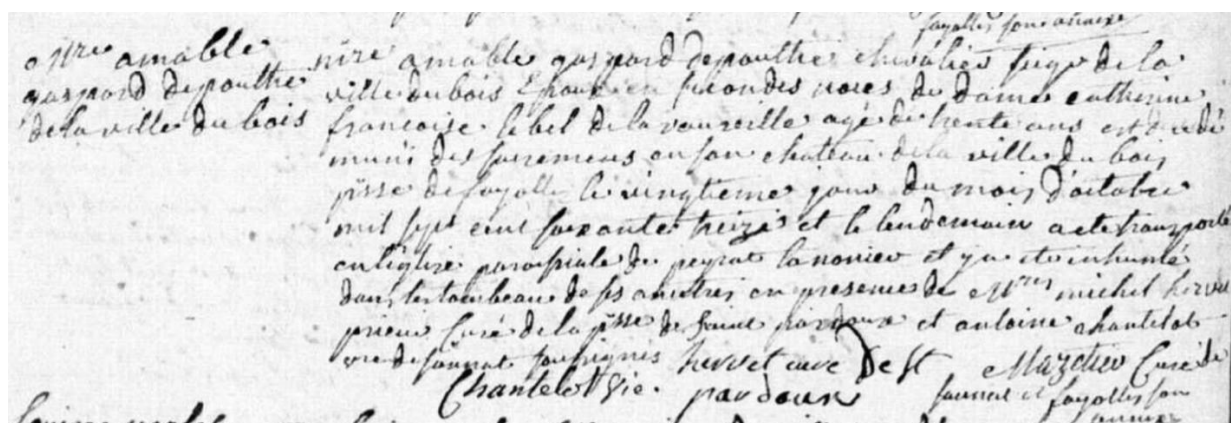 fayolles son annexe
Mre amable
gaspard depouthe
de la ville du bois
mre amable gaspard depouthe chevalier seigr de la
ville du bois Epoux en secondes noces de dame catherine
francoise lebel de la vaureille agé de trente ans est decedé
muni des sacremens en son chateau de la ville du bois
psse de fayolle le vingtieme jour du mois d'octobre
mil sept cent soixante treize et le lendemain a ete transporté
en leglise paroissiale de peyrat lanoniere et y a ete inhumé
dans le tombeau de ses ancetres en presence de Mres michel hervet
prieur curé de la psse de saint pardoux et antoine chantelot
vic de sannat soussignés hervet curé De st
pardoux
Chantelot vic.
Mazetier Curé de
sannat et fayolles son
annexe